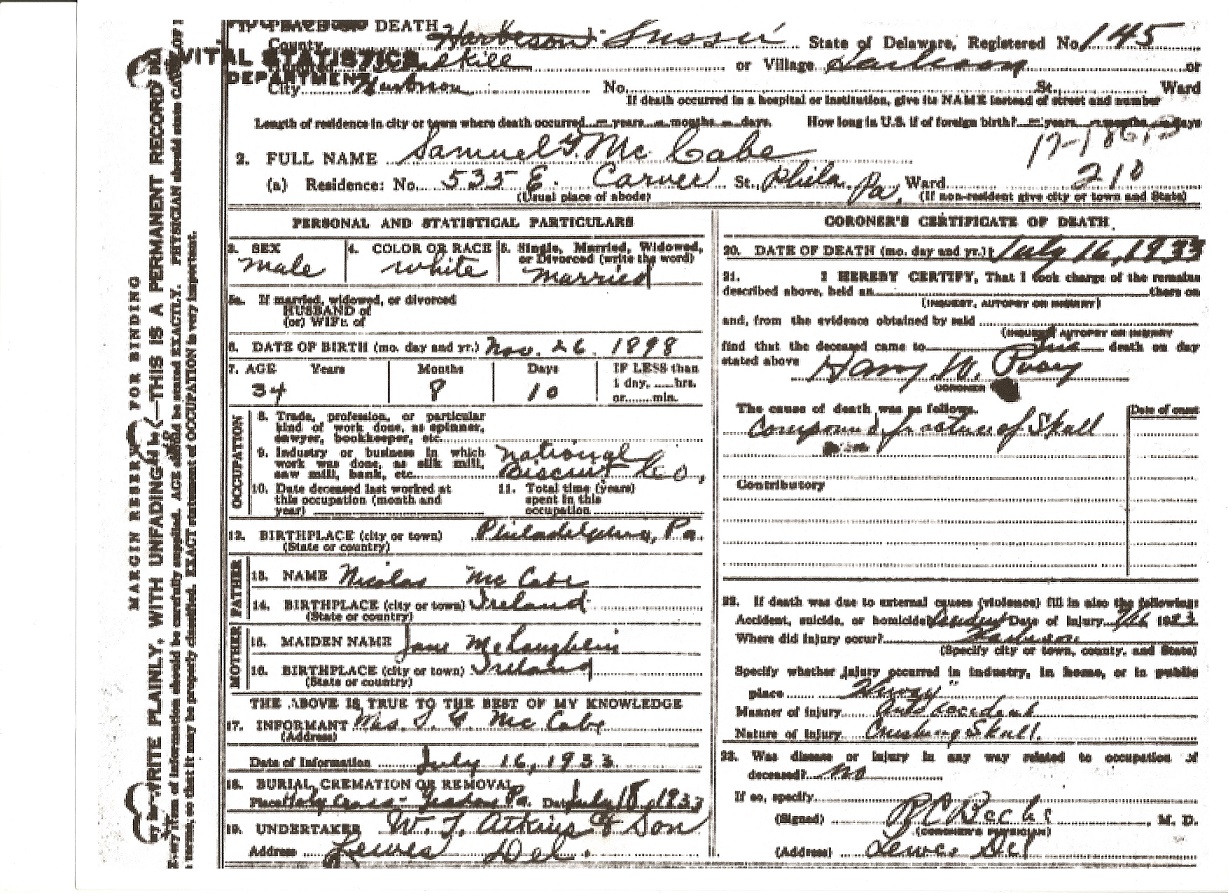 1. PLACE OF DEATH
County Harbeson Sussex State of Delaware, Registered No. 145
VITAL STATISTICS
DEPARTMENT
or Village Harbeson or
City Harbeson No. St., Ward
If death occurred in a hospital or institution, give its NAME instead of street and number
Length of residence in city or town where death occurred years months days. How long in U.S. if of foreign birth? years months days
2. FULL NAME Samuel G. Mc Cabe
210
(a) Residence: No. 535 E. Carver St. Phila. Pa. Ward
(Usual place of abode) (If non-resident give city or town and State)
MARGIN RESERVED FOR BINDING
WRITE PLAINLY, WITH UNFADING INK—THIS IS A PERMANENT RECORD
Every item of information should be carefully supplied. AGE should be stated EXACTLY. PHYSICIAN should state CAUSE OF
terms, so that it may be properly classified. EXACT statement of OCCUPATION is very important.
PERSONAL AND STATISTICAL PARTICULARS
3. SEX male
4. COLOR OR RACE white
5. Single, Married, Widowed, or Divorced (write the word) married
5a. If married, widowed, or divorced
HUSBAND of
(or) WIFE of
6. DATE OF BIRTH (mo. day and yr.) Nov. 26. 1898
7. AGE Years Months Days IF LESS than
34 8 10 1 day, hrs.
or min.
OCCUPATION
8. Trade, profession, or particular
kind of work done, as spinner,
sawyer, bookkeeper, etc.
9. Industry or business in which National
work was done, as silk mill, Biscuit Co.
saw mill, bank, etc.
10. Date deceased last worked at
this occupation (month and
year)
11. Total time (years)
spent in this
occupation
12. BIRTHPLACE (city or town) Philadelphia, Pa.
(State or country)
FATHER
13. NAME Nicolas Mc Cabe
14. BIRTHPLACE (city or town) Ireland
(State or country)
MOTHER
15. MAIDEN NAME Jane McLaughlin
16. BIRTHPLACE (city or town) Ireland
(State or country)
THE ABOVE IS TRUE TO THE BEST OF MY KNOWLEDGE
17. INFORMANT Mrs. S. G. Mc Cabe
(Address)
Date of Information July 16, 1933
18. BURIAL CREMATION OR REMOVAL
Place Holy Cross- Yeadon Pa. Date July 18, 1933
19. UNDERTAKER W. J. Atkins & Son
Address Lewes Del.
CORONER'S CERTIFICATE OF DEATH
20. DATE OF DEATH (mo. day and yr.) July 16, 1933
21. I HEREBY CERTIFY, That I took charge of the remains
described above, held an there on
(INQUEST, AUTOPSY OR INQUIRY)
and, from the evidence obtained by said
(INQUEST AUTOPSY OR INQUIRY)
find that the deceased came to his death on day
stated above Harry W.
CORONER
The cause of death was as follows. Date of onset
Compound fracture of Skull
Contributory
22. If death was due to external causes (violence) fill in also the following:
Accident, suicide, or homicide Accident Date of injury 7/16 1933
Where did injury occur? Harbeson
(Specify city or town, county, and State)
Specify whether injury occurred in industry, in home, or in public
place "Hiway"
Manner of injury Auto accident
Nature of injury Crushing Skull.
23. Was disease or injury in any way related to occupation of
deceased? No
If so, specify
(Signed) R C Beebe M. D.
(CORONER'S PHYSICIAN)
(Address) Lewes Del